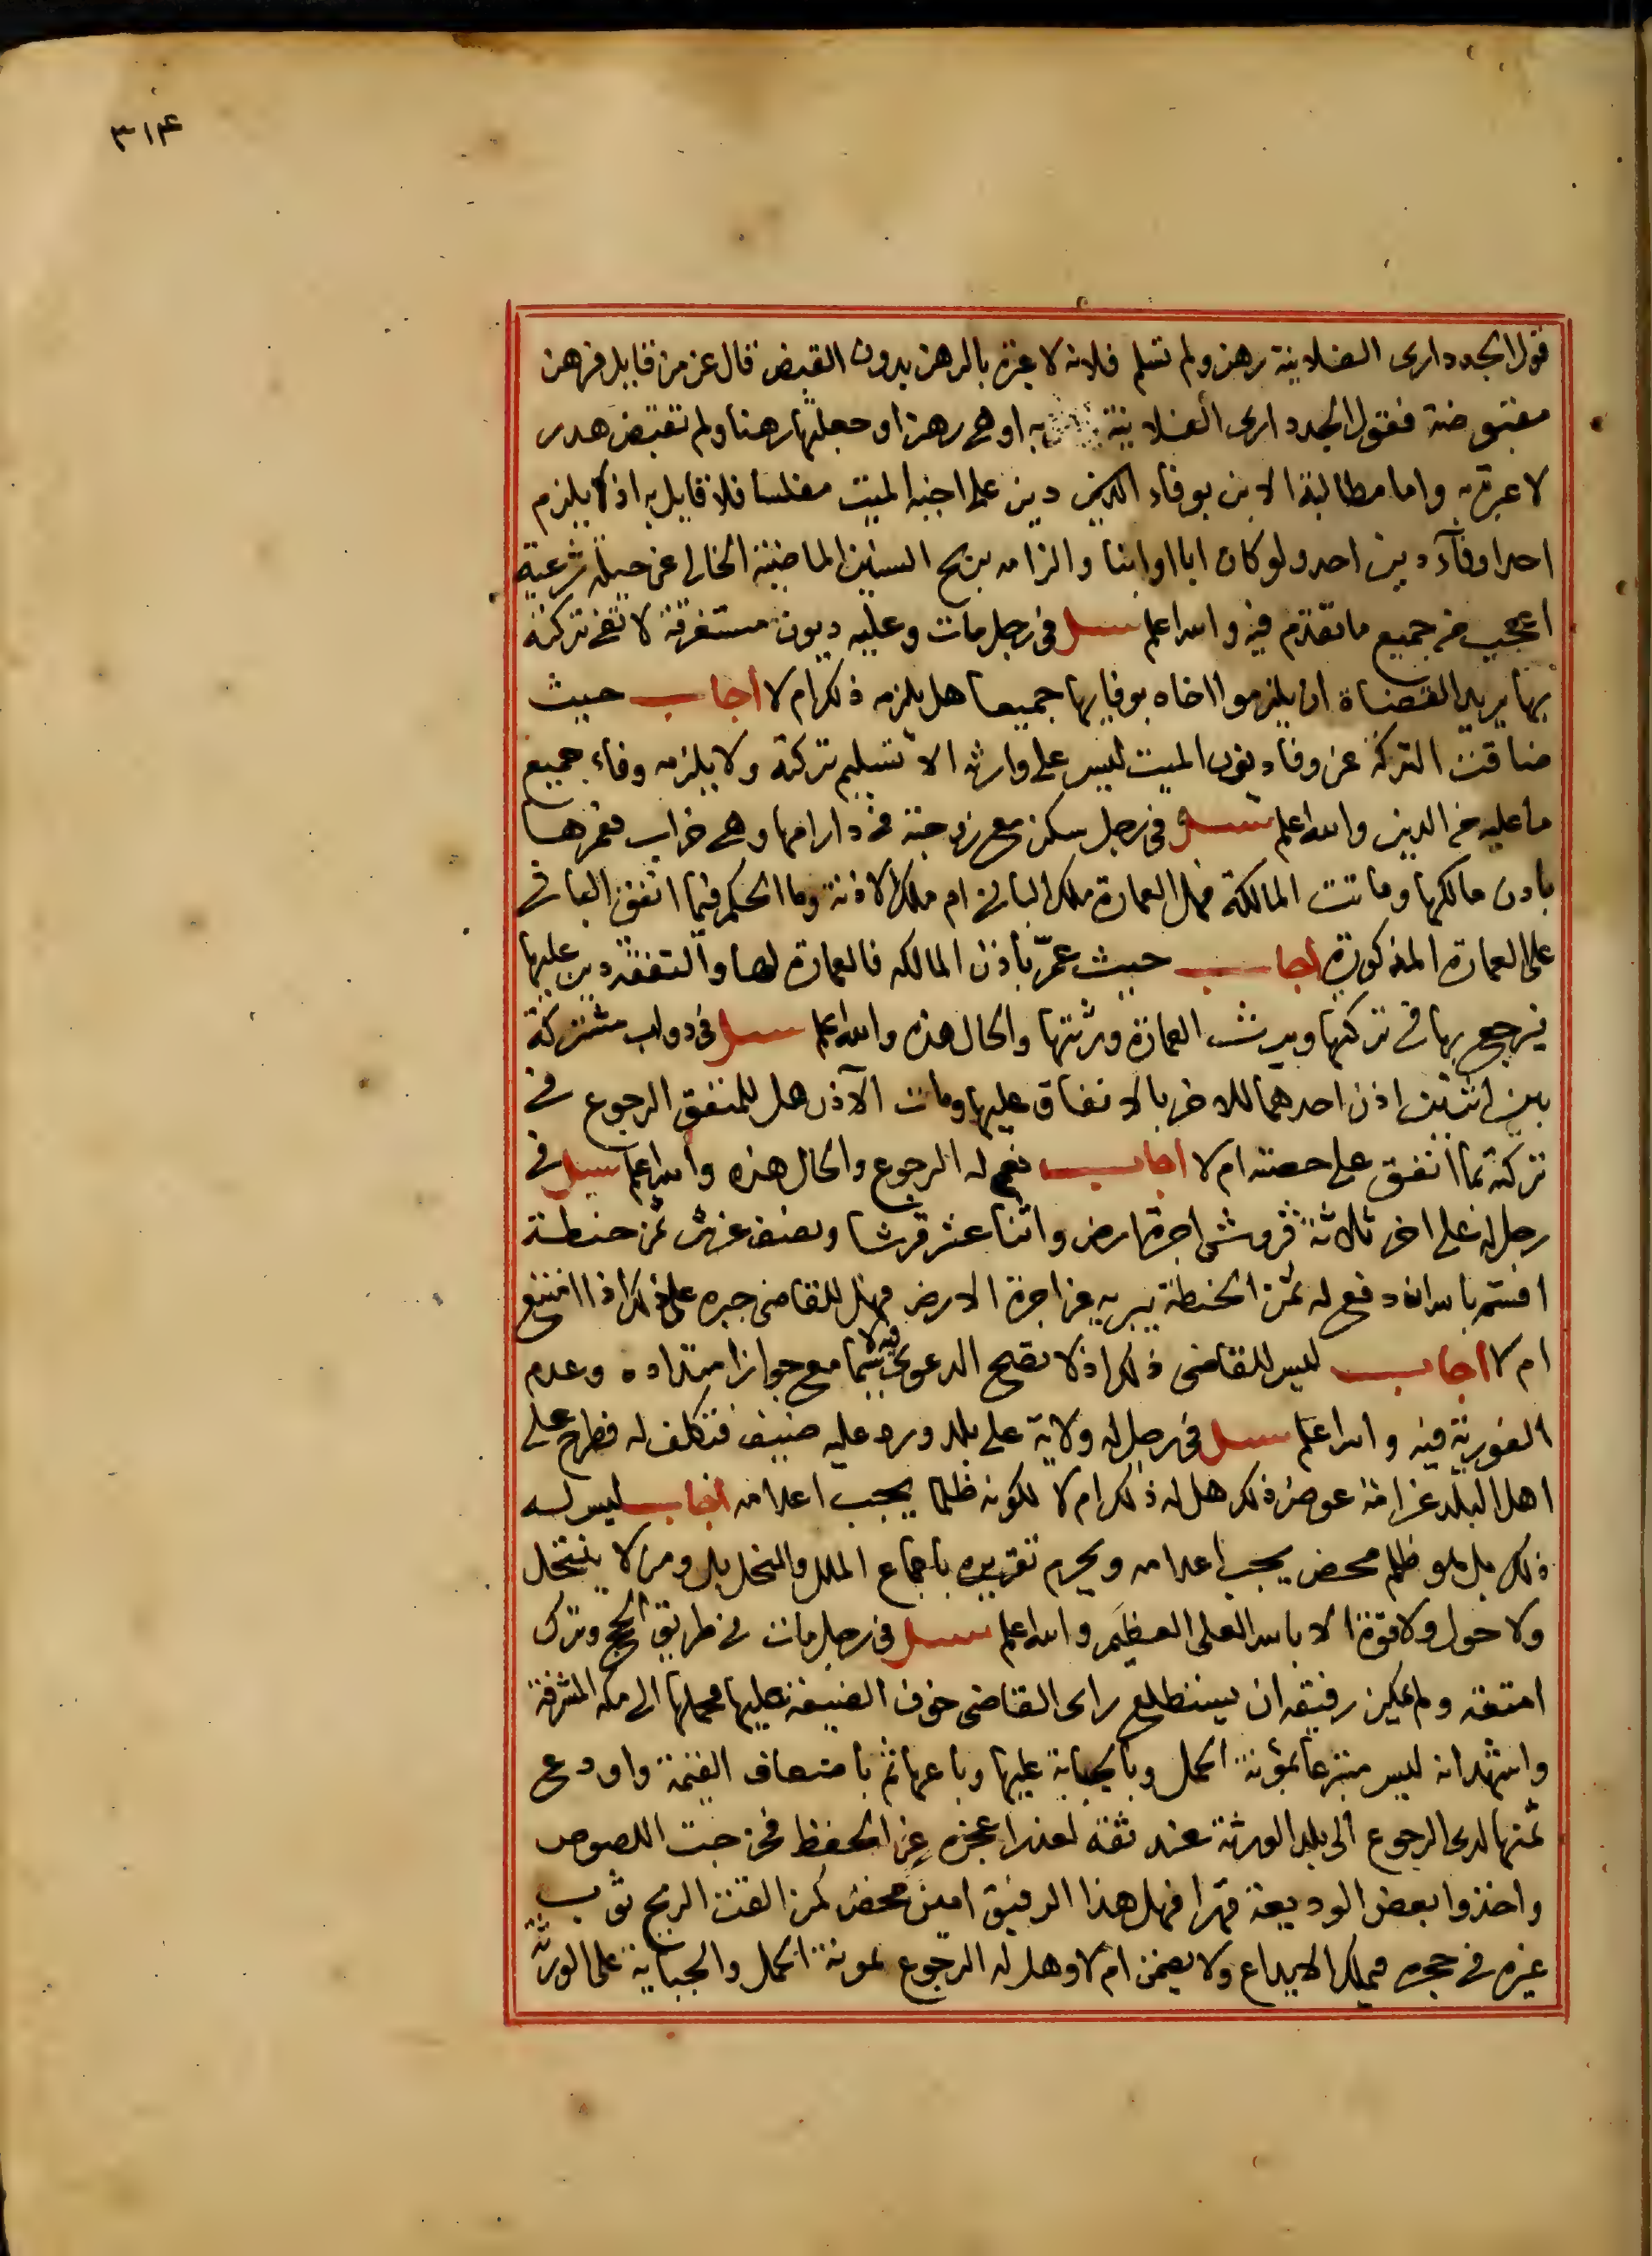 ٣١۴
قول الجد داري الفلانية رهن ولم تسلم فلانه لا عبرة بالرهن بدون القبض قال عز من قايل فرهن
مقبوضة فقول الجد داري الفلانية به او هي رهن او جعلتها رهنا ولم تقبض هدر
لا عبرة به واما مطالبة الابن بوفاء الدين دين على اخيه الميت مفلسا فلا قايل به اذ لا يلزم
احدا وفآء دين احد ولو كان ابا او ابنا والزامه بربح السنين الماضية الخالي عن حيلة شرعية
اعجب من جميع ما تقدم فيه والله اعلم سئل في رجل مات وعليه ديون مستغرقة لا تفي تركته
بها يريد القضاة ان يلزموا اخاه بوفايها جميعا هل يلزمه ذلك ام لا اجاب حيث
ضاقت التركة عن وفاء ديون الميت ليس على وارثه الا تسليم تركته ولا يلزمه وفاء جميع
ما عليه من الدين والله اعلم سئل في رجل سكن مع زوجته في دار امها وهي خراب فعمرها
باذن مالكها وماتت المالكة فهل العمارة ملك الباني ام ملك الاذنة وما الحكم فيما انفق الباني
على العمارة المذكورة اجاب حيث عمّر باذن المالكه فالعمارة لها والنفقة دين عليها
فيرجع بها في تركتها ويرث العمارة ورثتها والحال هذه والله اعلم سئل في دواب مشتركة
بين اثنين اذن احدهما للاخر بالانفاق عليها ومات الآذن هل للمنفق الرجوع في
تركته بما انفق على حصته ام لا اجاب نعم له الرجوع والحال هذه والله اعلم سئل في
رجل له على اخر ثلاثة قروش اجرة ارض واثنا عشر قرشا ونصف غرش ثمن حنطة
اقسم بالله انه دفع له ثمن الحنطة يبريه عن اجرة الارض فهل للقاضي جبره على ذلك اذا امتنع
ام لا اجاب ليس للقاضي ذلك اذ لا تصح الدعوى فيه لا سيما مع جواز امتداده وعدم
الفورية فيه والله اعلم سئل في رجل له ولاية على بلد ورد عليه ضيف فتكلف له فطرح على
اهل البلد غرامة عوض ذلك هل له ذلك ام لا لكونه ظلما يجب اعدامه اجاب ليس له
ذلك بل هو ظلم محض يجب اعدامه ويحرم تقريره باجماع الملل والنحل بل ومن لا ينتحل
ولا حول ولا قوة الا بالله العلي العظيم والله اعلم سئل في رجل مات في طريق الحج وترك
امتعة ولم يمكن رفيقه ان يستطلع راى القاضي خوف الضيعة عليها فحملها الى مكه المشرفة
واشهد انه ليس متبرعا بمؤنة الحمل وبالجباية عليها وباعها ثم باضعاف القيمة واودع
ثمنها لدى الرجوع الى بلد الورثة عند ثقة لعذر اعجزه عن الحفظ فخرجت اللصوص
واخذوا بعض الوديعة قهرا فهل هذا الرفيق امين محض كمن القت الريح ثوب
غيره في حجره فيملك الايداع ولا يضمن ام لا وهل له الرجوع بمونة الحمل والجباية على الورثة